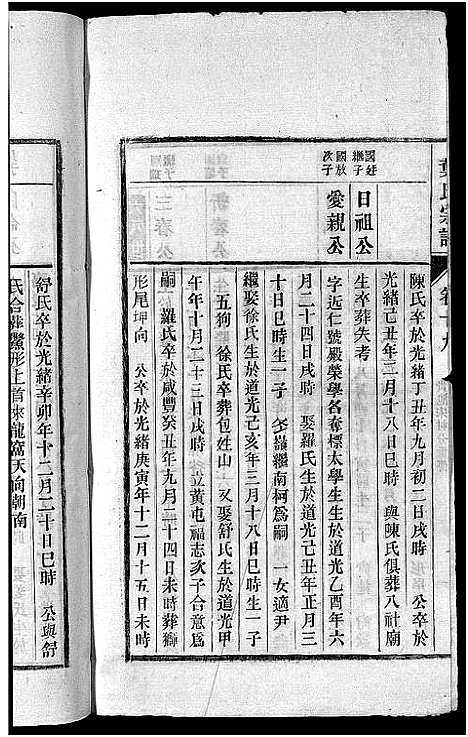 葉氏宗譜
卷十九
陳氏卒於光緒丁丑年九月初二日戌時 公卒於
光緒己丑年二月十八日巳時 與陳氏俱葬八社廟
國廷繼子
日祖公
生卒葬失考
國放次子
愛親公
字近仁號殿榮學名春標太學生生於道光乙酉年六
月二十四日戌時 娶羅氏生於道光己丑年正月三
十日巳時生一子 繼南柯爲嗣 一女適尹
繼娶徐氏生於道光己亥年三月十八日巳時生一子
五狗 徐氏卒葬包姓山 又娶舒氏生於道光甲
午年十月二十三日戌時 立黄屯福志次子合意爲
嗣 羅氏卒於咸豐癸丑年九月二十四日未時葬獅
形尾坤向 公卒於光緒庚寅年十二月十五日未時
舒氏卒於光緒辛卯年十二月二十日巳時 公與舒
氏合葬鱉形上首來龍窩天向朝南